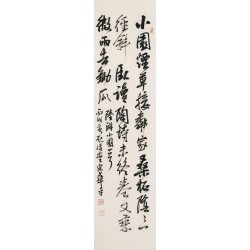 小園煙草接鄰家桑柘陰〻一
徑斜臥讀陶詩未終卷又乘
微雨去鋤瓜
陸游小園一首